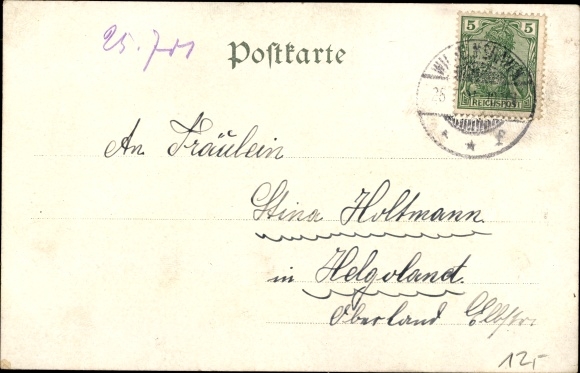 25. 7 01
Postkarte
5 5
REICHSPOST
25
* * f
An Fräulein
Stina Holtmann
in Helgoland.
Oberland Elbstr.
12,-